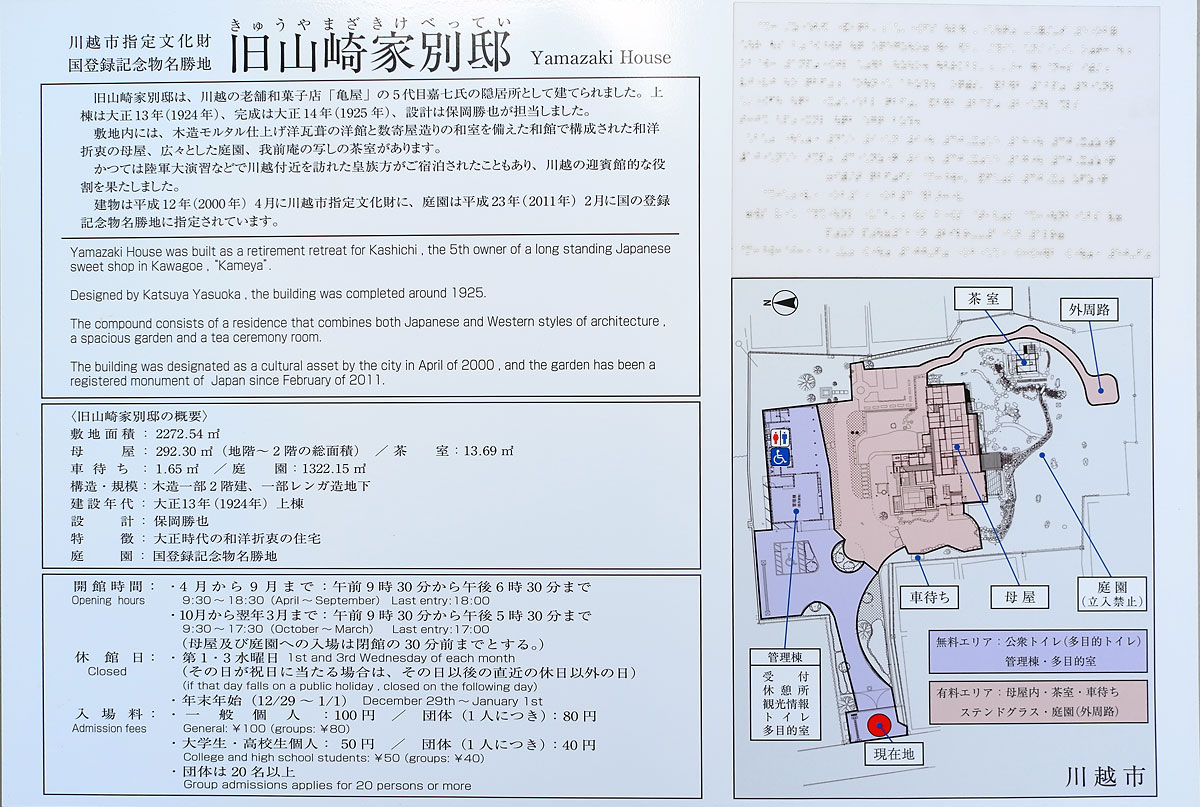 きゅうやまざきけべってい
川越市指定文化財
国登録記念物名勝地
旧山崎家別邸 Yamazaki House
旧山崎家別邸は、川越の老舗和菓子店「亀屋」の5代目嘉七氏の隠居所として建てられました。上
棟は大正13年(1924年)、完成は大正14年(1925年)、設計は保岡勝也が担当しました。
敷地内には、木造モルタル仕上げ洋瓦葺の洋館と数寄屋造りの和室を備えた和館で構成された和洋
折衷の母屋、広々とした庭園、我前庵の写しの茶室があります。
かつては陸軍大演習などで川越付近を訪れた皇族方がご宿泊されたこともあり、川越の迎賓館的な役
割を果たしました。
建物は平成12年(2000年)4月に川越市指定文化財に、庭園は平成23年(2011年)2月に国の登録
記念物名勝地に指定されています。
Yamazaki House was built as a retirement retreat for Kashichi , the 5th owner of a long standing Japanese
sweet shop in Kawagoe , "Kameya".
Designed by Katsuya Yasuoka , the building was completed around 1925.
The compound consists of a residence that combines both Japanese and Western styles of architecture ,
a spacious garden and a tea ceremony room.
The building was designated as a cultural asset by the city in April of 2000 , and the garden has been a
registered monument of Japan since February of 2011.
〈旧山崎家別邸の概要〉
敷地面積：2272.54㎡
母屋：292.30㎡（地階〜2階の総面積）／茶室：13.69㎡
車待ち：1.65㎡ ／庭園：1322.15㎡
構造・規模：木造一部2階建、一部レンガ造地下
建設年代：大正13年(1924年)上棟
設計：保岡勝也
特徴：大正時代の和洋折衷の住宅
庭園：国登録記念物名勝地
開館時間：・4月から9月まで：午前9時30分から午後6時30分まで
Opening hours 9:30～18:30 (April～September) Last entry:18:00
・10月から翌年3月まで：午前9時30分から午後5時30分まで
9:30～17:30 (October～March) Last entry:17:00
(母屋及び庭園への入場は閉館の30分前までとする。)
休館日：・第1・3水曜日 1st and 3rd Wednesday of each month
Closed (その日が祝日に当たる場合は、その日以後の直近の休日以外の日)
(if that day falls on a public holiday , closed on the following day)
・年末年始（12/29～1/1） December 29th～January 1st
入場料：・一般個人：100円 ／ 団体（1人につき）：80円
Admission fees General: ¥100 (groups: ¥80)
・大学生・高校生個人：50円 ／ 団体（1人につき）：40円
College and high school students: ¥50 (groups: ¥40)
・団体は20名以上
Group admissions applies for 20 persons or more
N
茶室
外周路
車待ち
母屋
庭園
(立入禁止)
管理棟
受付
休憩所
観光情報
トイレ
多目的室
無料エリア：公衆トイレ(多目的トイレ)
管理棟・多目的室
有料エリア：母屋内・茶室・車待ち
ステンドグラス・庭園(外周路)
現在地
川越市